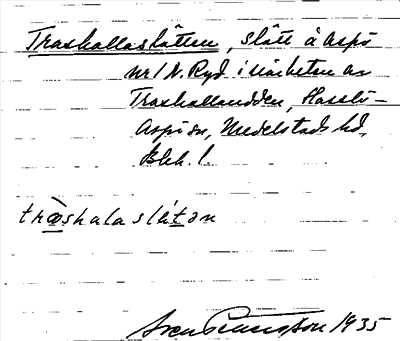 Traskallaslätten, slått å Aspö
nr 1 N. Ryd i närheten av
Traskallaudden, Hasslö-
Aspö sn, Medelstads hd,
Blek. l.
tràskalaslétən
Sven Benson 1935